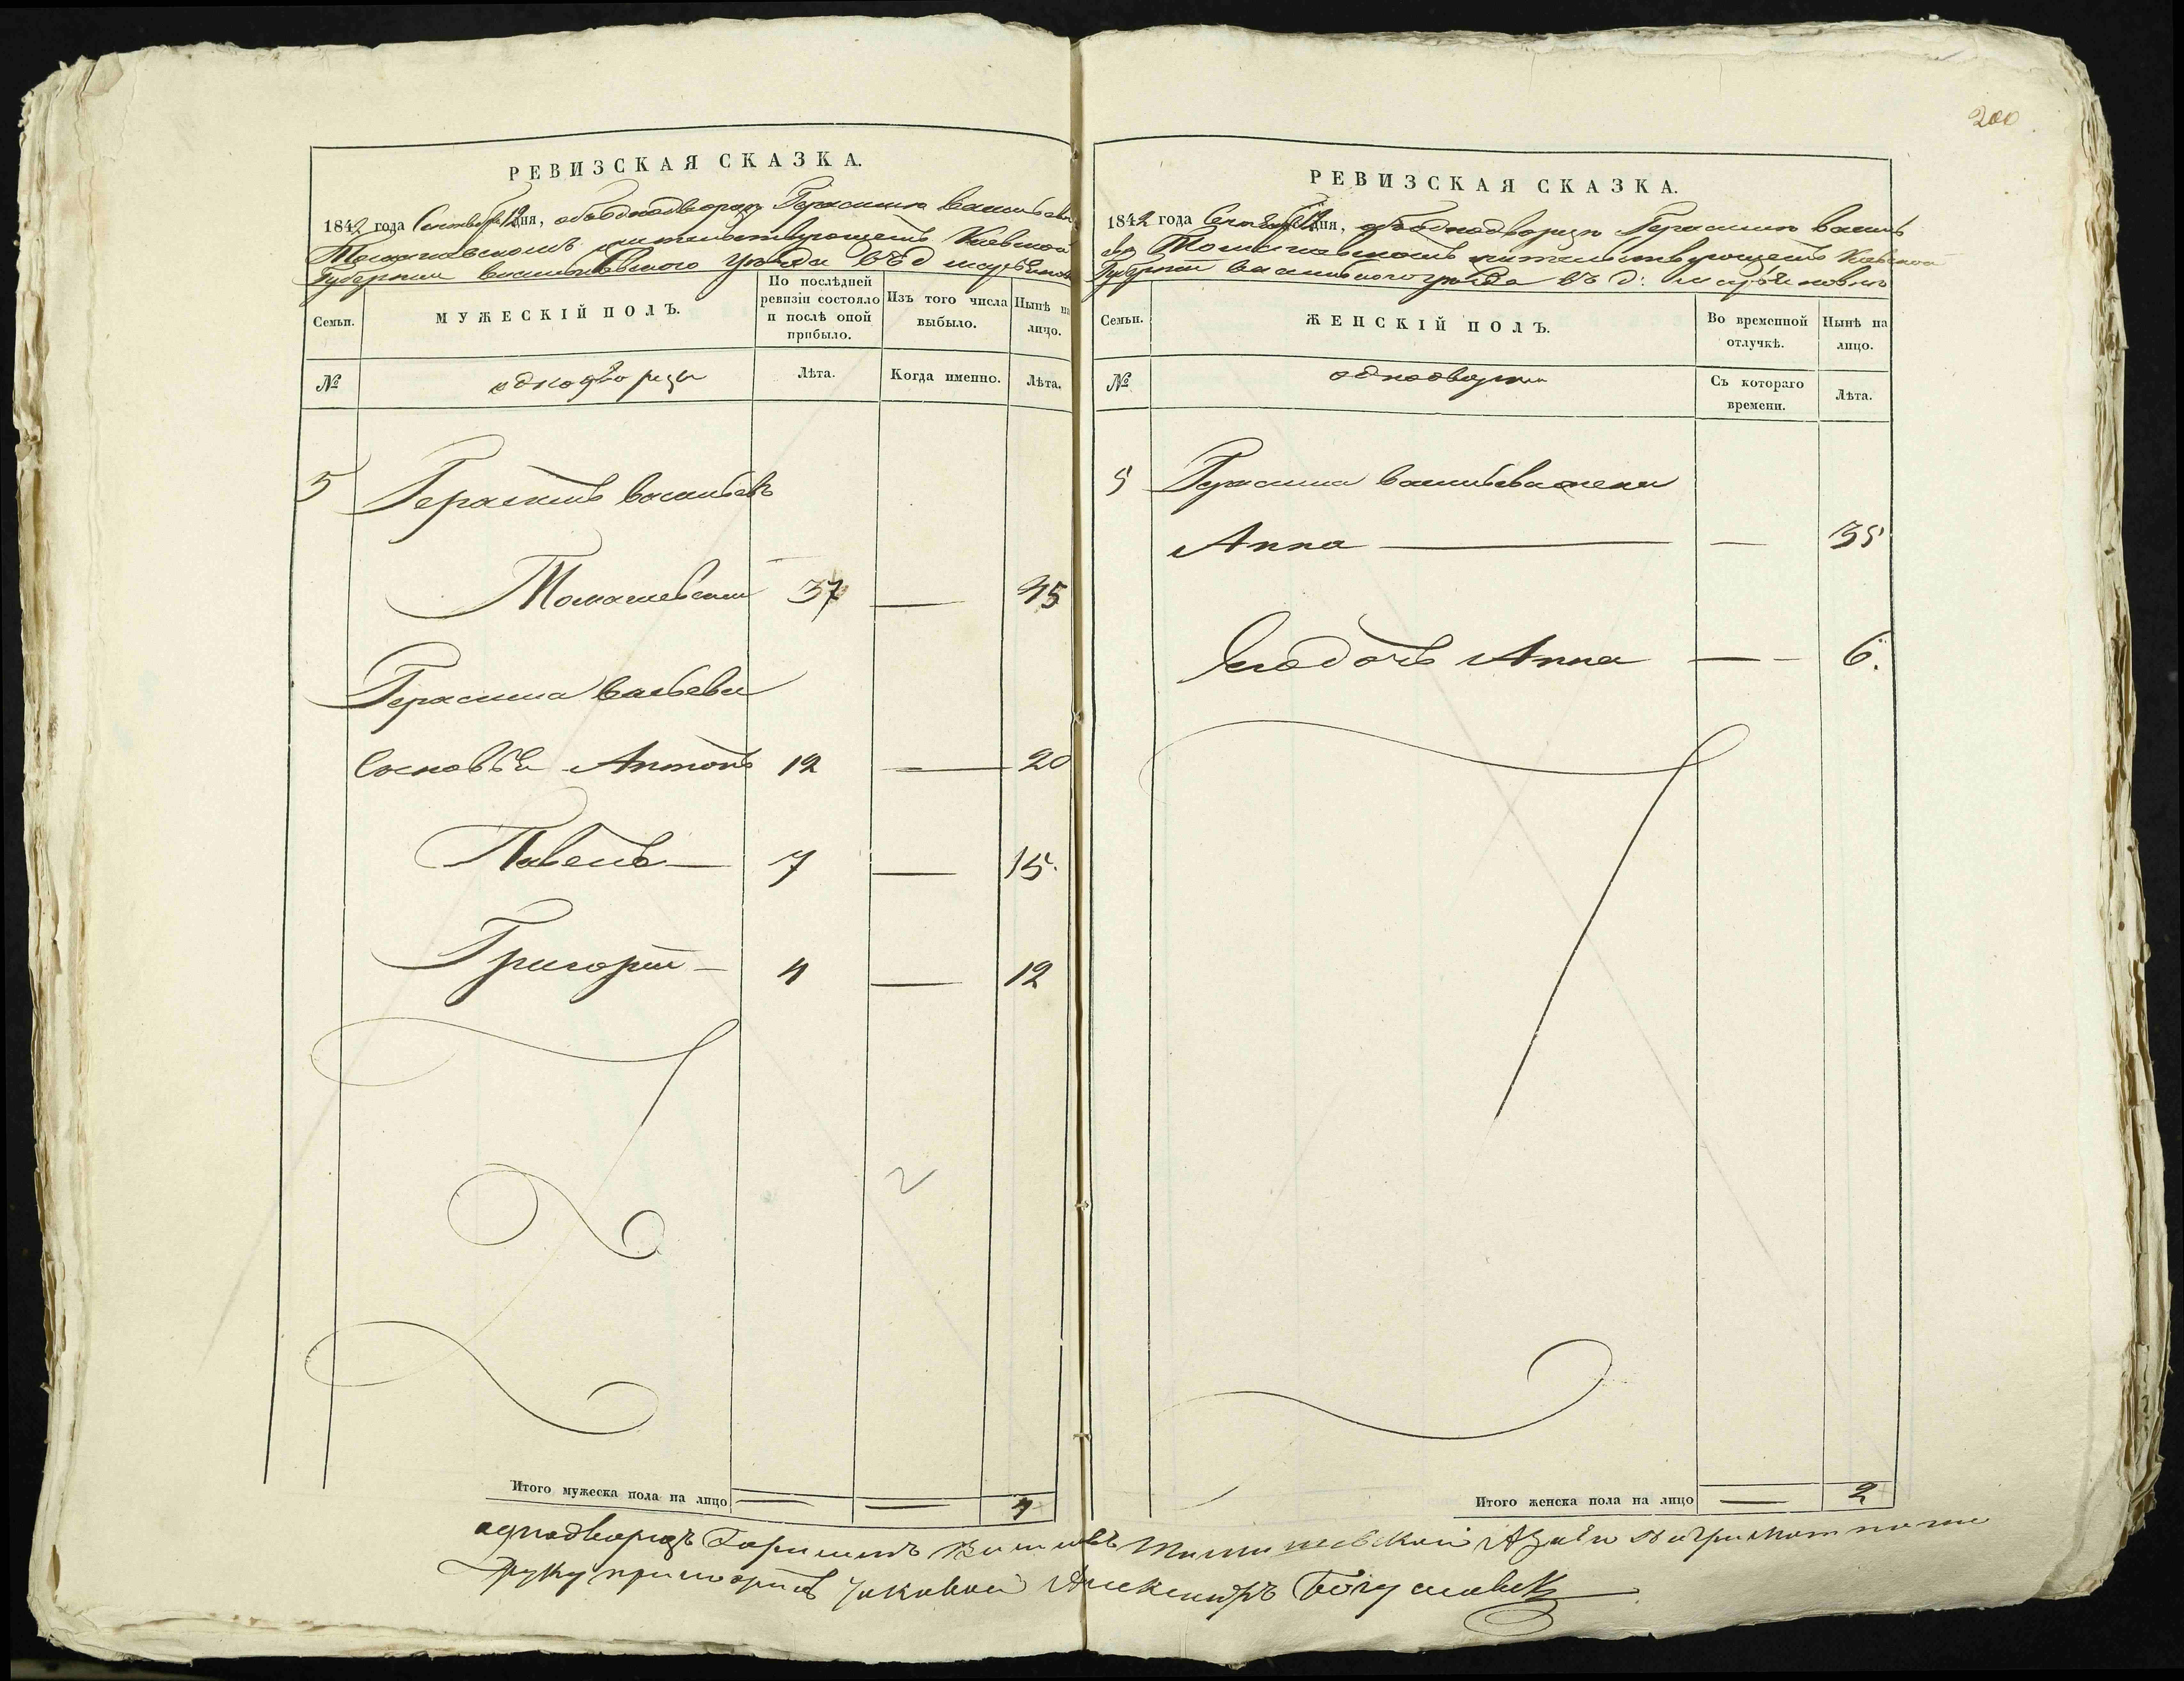 200
РЕВИЗСКАЯ СКАЗКА.
1842 года Сентября 12 дня, объ однодворцѣ Герасимѣ Васильевѣ
Томашевскомъ жительствующемъ Кіевской
Губерніи Васильковскаго уѣзда въ д
Семьи.
МУЖЕСКІЙ ПОЛЪ.
По послѣдней ревизіи состояло и послѣ оной прибыло.
Изъ того числа выбыло.
Нынѣ на лицо.
№
однодворцы
Лѣта.
Когда именно.
Лѣта.
5 Герасимъ Васильевъ
Томашевскій 37 — 45
Герасима Васльева
Сыновья Антонъ 12 — 20
Павелъ — 7 — 15.
Григорій — 4 — 12
Итого мужеска пола на лицо — — 4
РЕВИЗСКАЯ СКАЗКА.
1842 года Сентября 12 дня, объ однодворцѣ Герасимѣ Василь
евѣ Томашевскомъ жительствующемъ Кіевской
Губерніи уѣзда въ д:
Семьи.
ЖЕНСКІЙ ПОЛЪ.
Во временной отлучкѣ.
Нынѣ на лицо.
№
однодворки
Съ котораго времени.
Лѣта.
5 Герасима Васильева жена
Анна — — 35
Его дочь Анна — — 6.
Итого женска пола на лицо — 2
однодворецъ Герасимъ Томашевскій А за его
руку Александръ